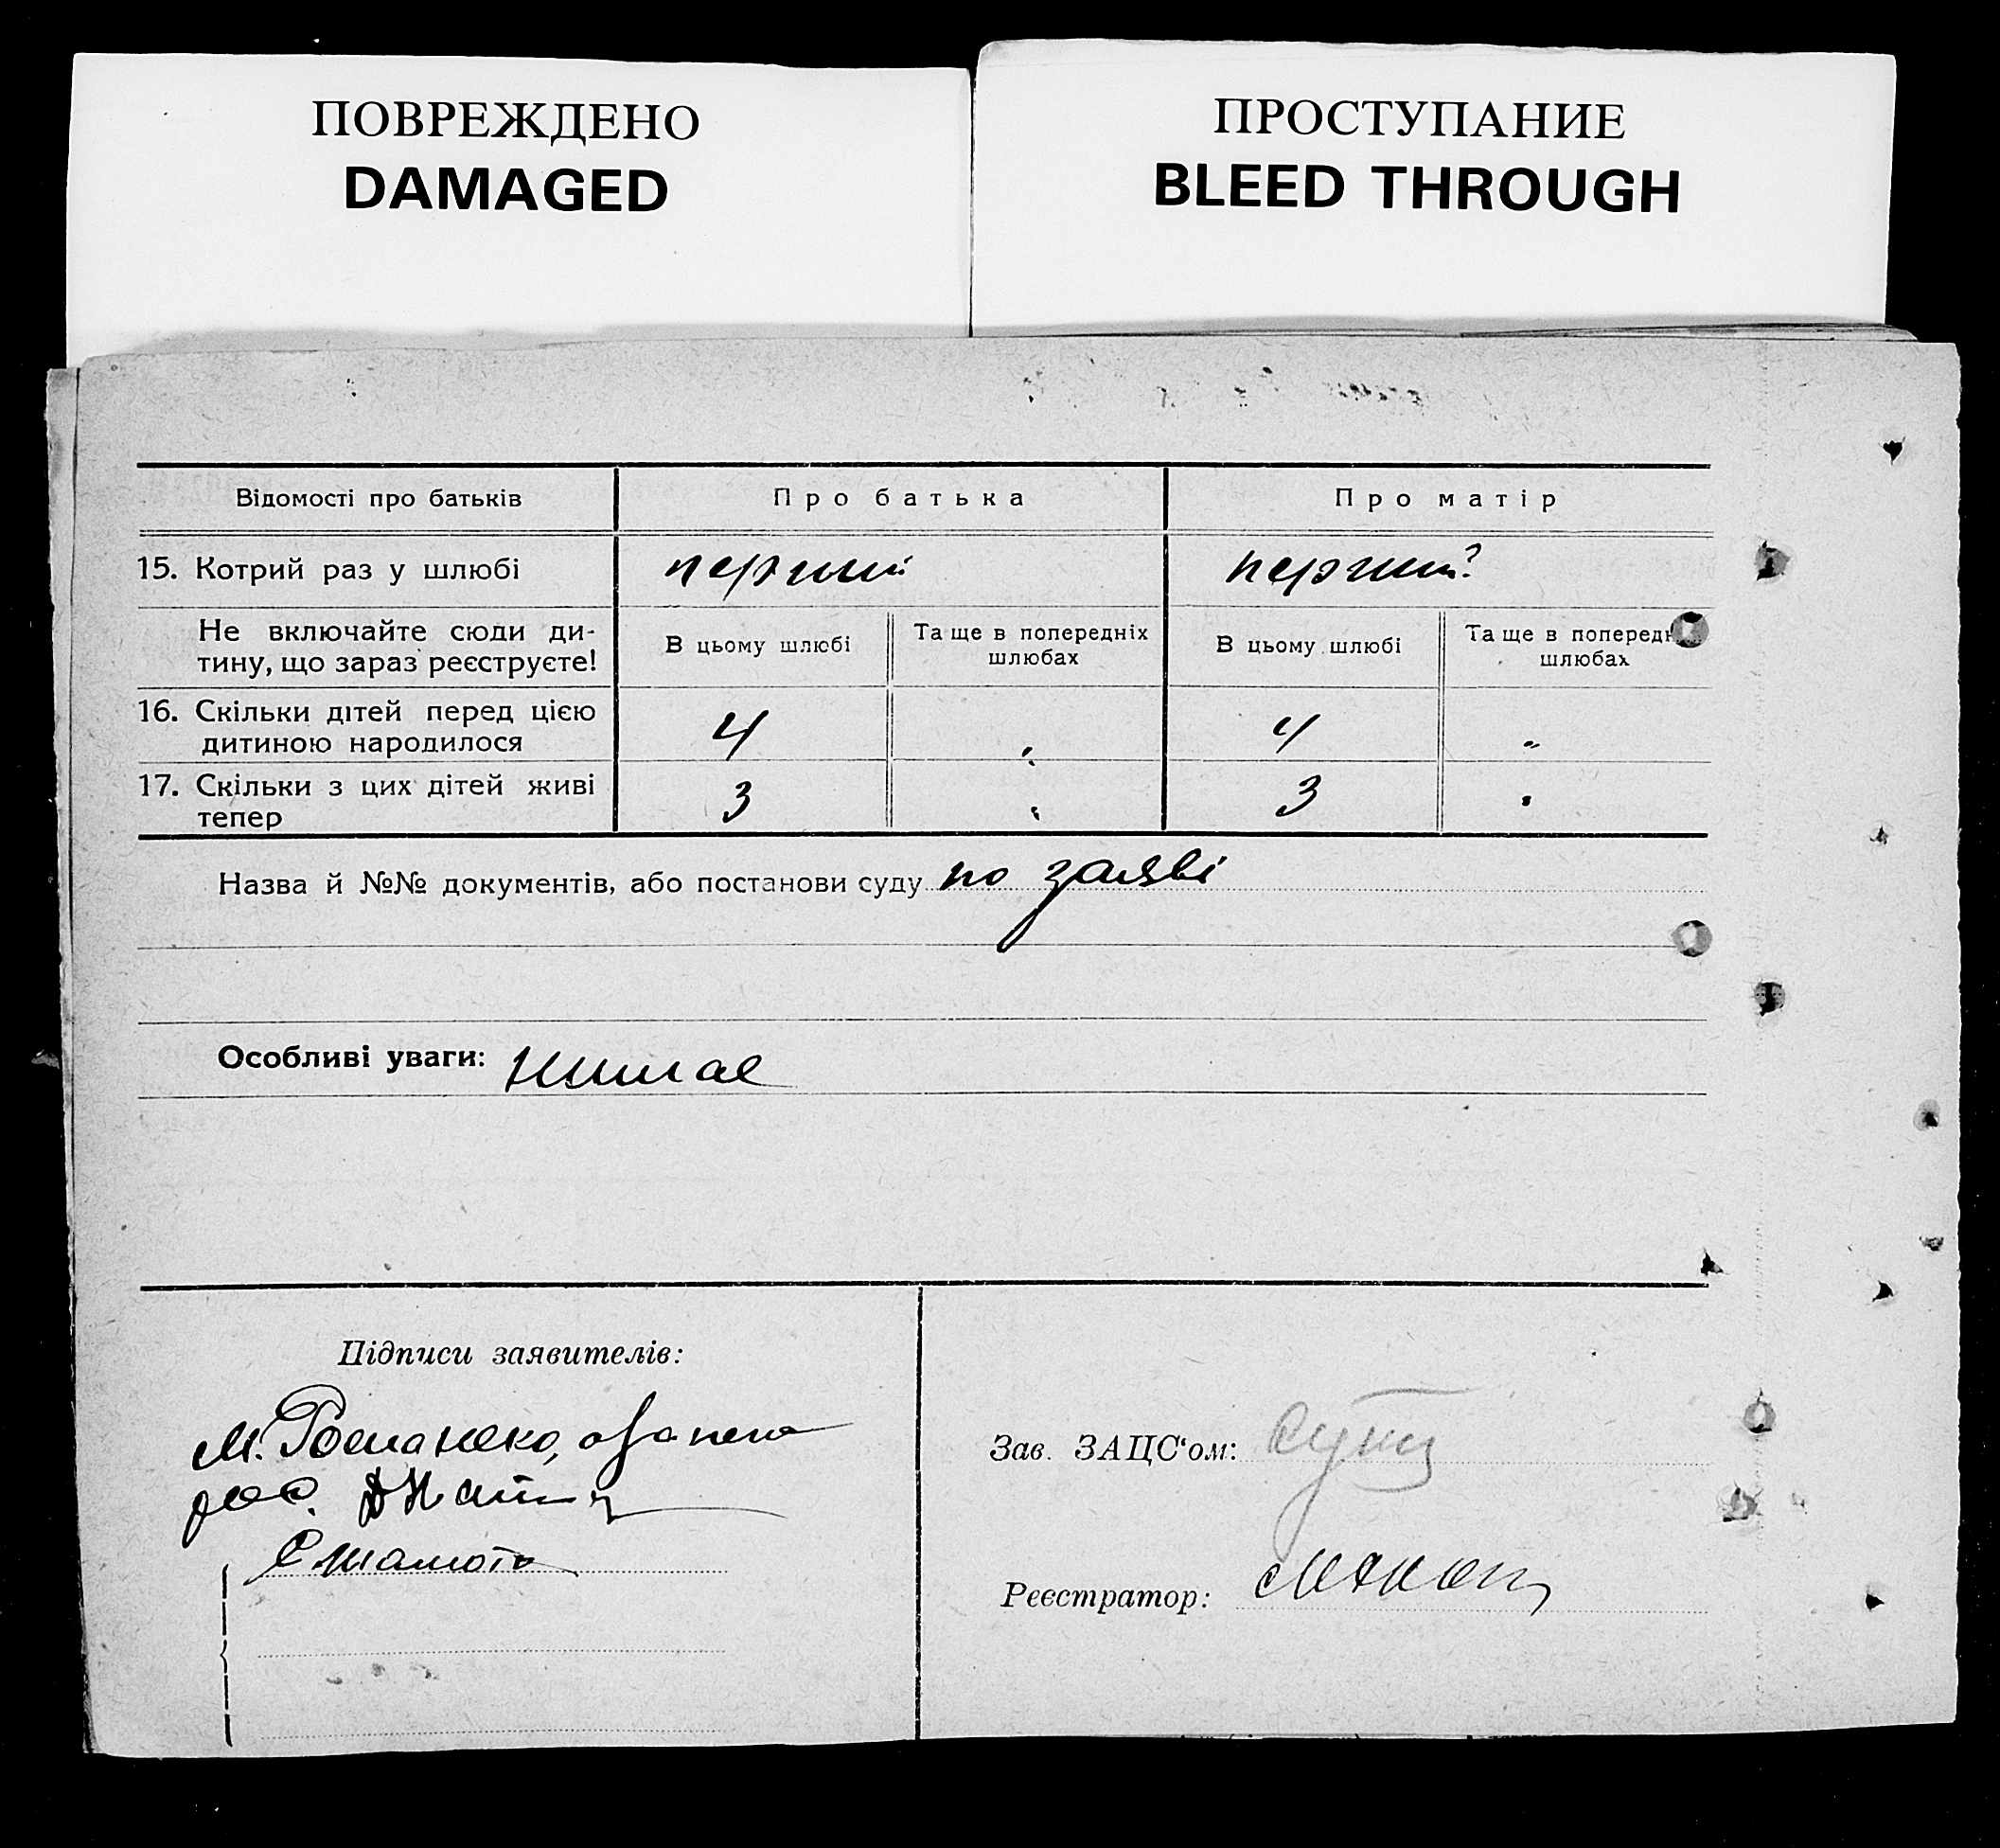 ПОВРЕЖДЕНО
DAMAGED
ПРОСТУПАНИЕ
BLEED THROUGH
Відомості про батьків
Про батька
Про матір
15. Котрий раз у шлюбі
перший
перший
Не включайте сюди ди-
тину, що зараз реєструєте!
В цьому шлюбі
Та ще в попередніх
шлюбах
В цьому шлюбі
Та ще в попередн
шлюбах
16. Скільки дітей перед цією
дитиною народилося
4
4
17. Скільки з цих дітей живі
тепер
3
3
Назва й №№ документів, або постанови суду по заяві
Особливі уваги: Нимає
Підписи заявителів:
М. Романенко,
рос.
Зав. ЗАЦС‘ом:
Реєстратор: